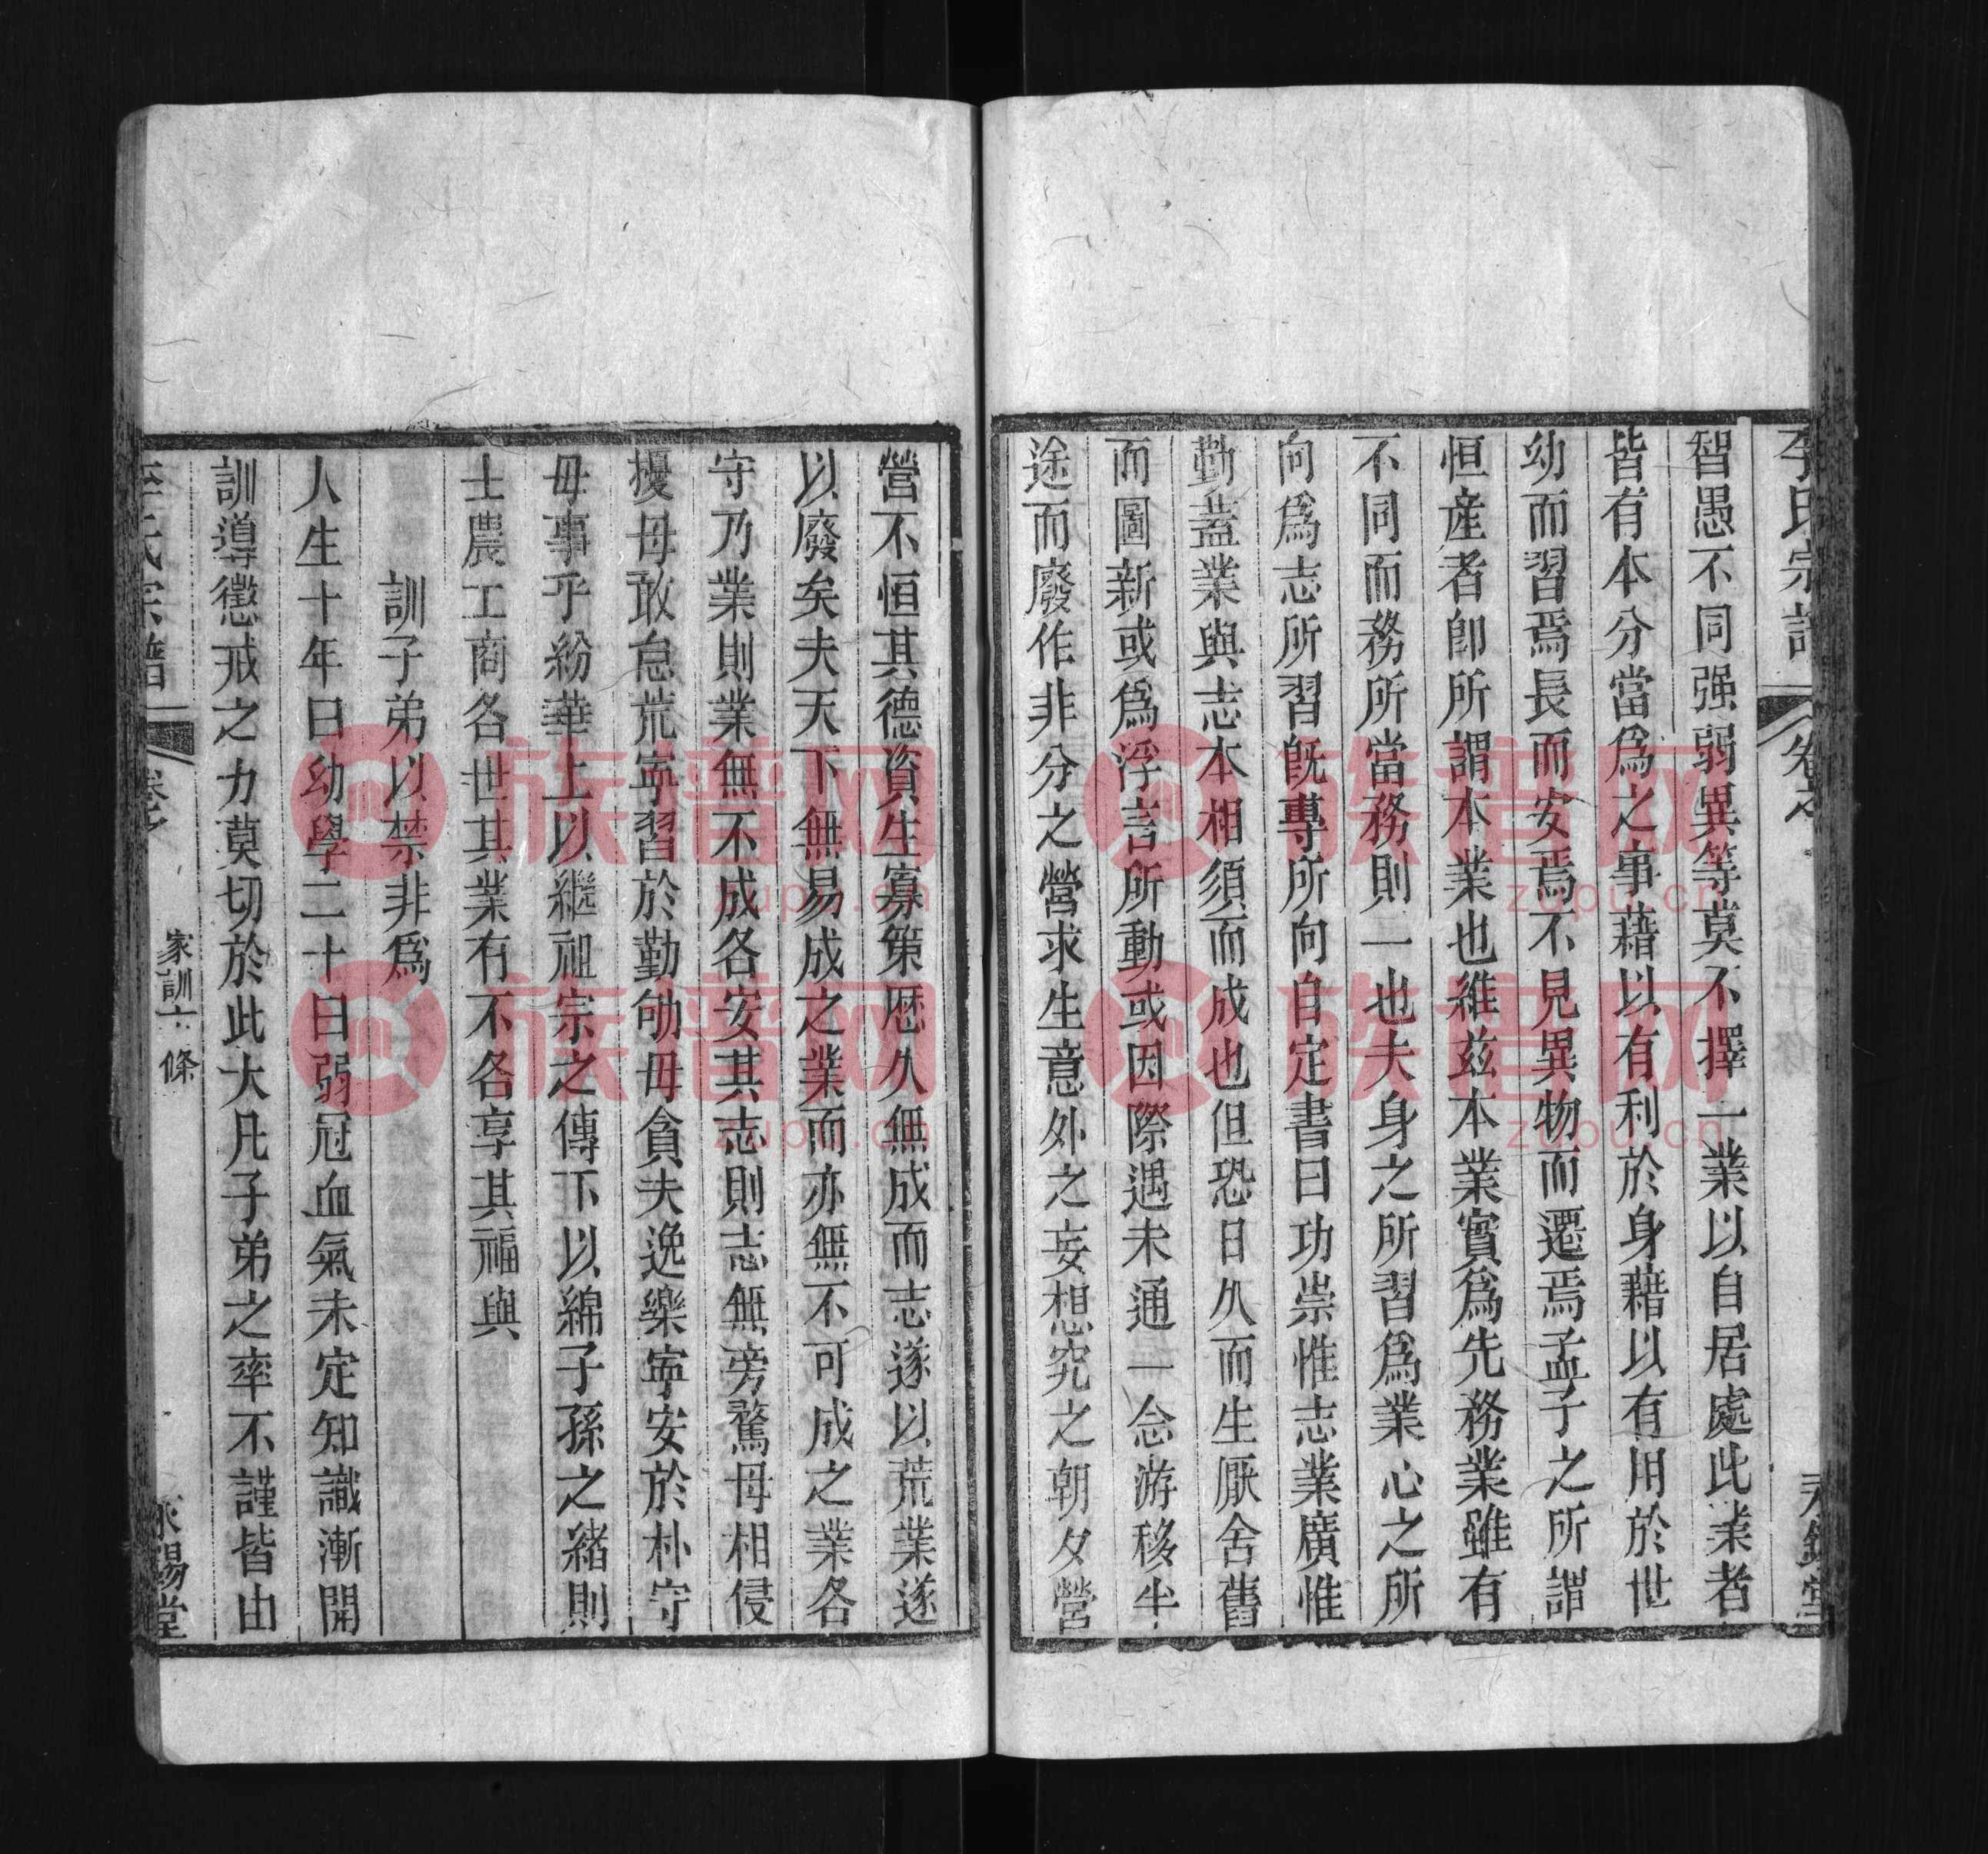 智愚不同强弱異等莫不擇一業以自居處此業者
皆有本分當爲之事藉以有利於身藉以有用於世
幼而習焉長而安焉不見異物而遷焉孟子之所謂
恒産者卽所謂本業也維兹本業實爲先務業雖有
不同而務所當務則一也夫身之所習爲業心之所
向爲志所習旣專所向自定書曰功崇惟志業廣惟
勤蓋業與志本相須而成也但恐日久而生厭舍舊
而圖新或爲浮言所動或因際遇未通一念游移半
途而廢作非分之營求生意外之妄想究之朝夕營
營不恒其德資生寡策歴久無成而志遂以荒業遂
以廢矣夫天下無易成之業而亦無不可成之業各
守乃業則業無不成各安其志則志無旁騖毋相侵
擾毋敢怠荒寧習於勤劬毋貪夫逸樂寧安於朴守
毋事乎紛華上以繼祖宗之傳下以綿子孫之緒則
士農工商各世其業有不各享其福與
訓子弟以禁非爲
人生十年曰幼學二十曰弱冠血氣未定知識漸開
訓導懲戒之力莫切於此大凡子弟之率不謹皆由
家訓十條
族譜网
zupu.cn
族譜网
zupu.cn
族譜网
zupu.cn
族譜网
zupu.cn